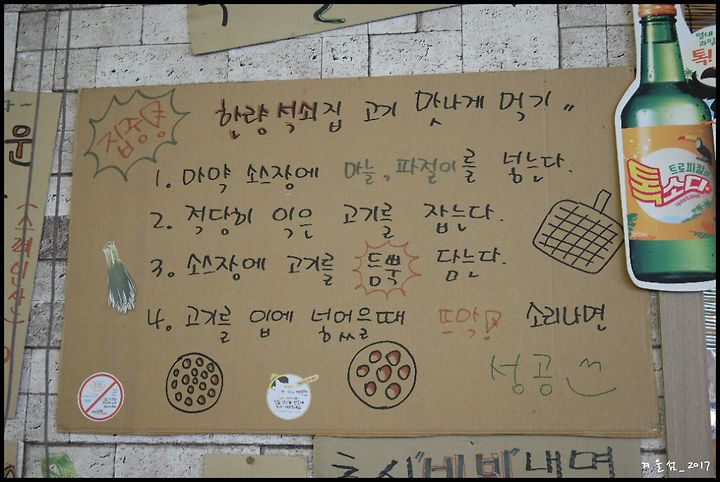 집중!
한량 석쇠집 고기 맛나게 먹기"
1. 마약 소스장에 마늘, 파절이를 넣는다.
2. 적당히 익은 고기를 잡는다.
3. 소스장에 고기를 듬뿍 담는다.
4. 고기를 입에 넣었을때 뜨악! 소리나면
성공
트로피칼이
톡소다
sparkling
"비빔"내면
겨울섬_2017